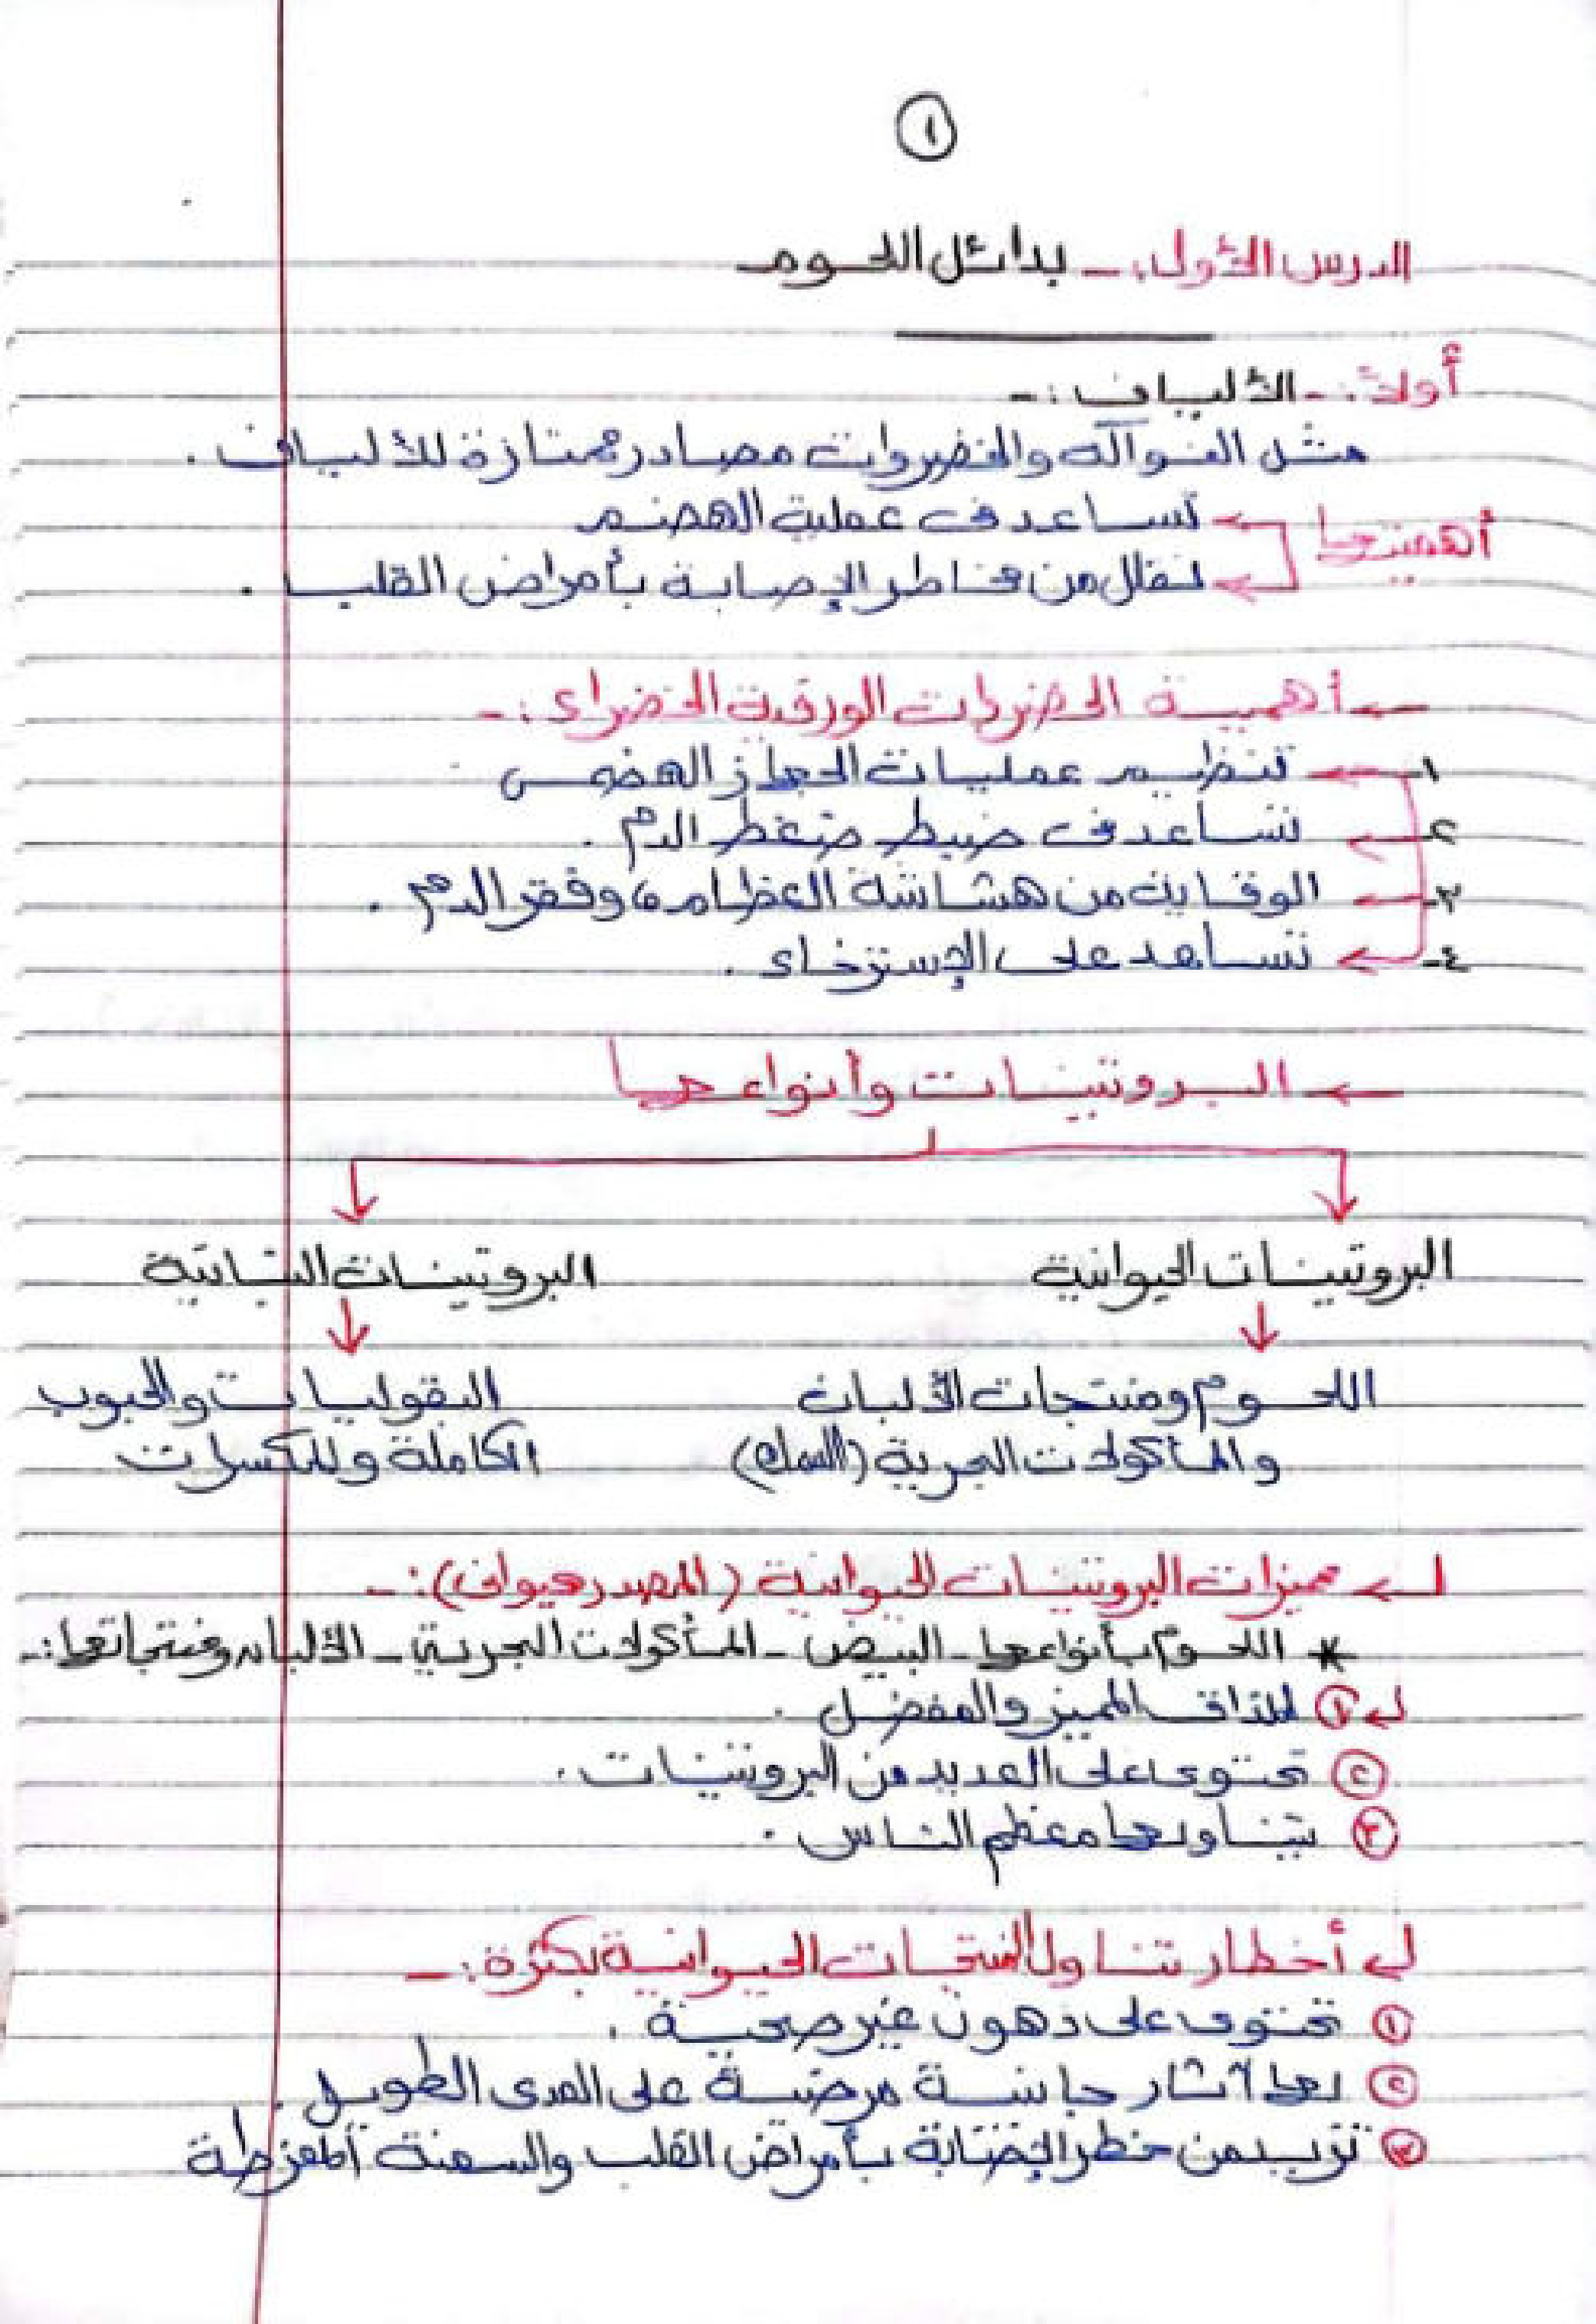 ١
الدرس الأول :- بدائل اللحوم
أولاً :- الألياف :-
مثل الفواكه والخضروات مصادر ممتازة للألياف .
أهميتها
تساعد فى عملية الهضم
تقلل من مخاطر الإصابة بأمراض القلب .
أهمية الخضروات الورقية الخضراء :-
١- تنظيم عمليات الجهاز الهضمى
٢- تساعد فى ضبط ضغط الدم .
٣- الوقاية من هشاشة العظام ، وفقر الدم .
٤- تساعد على الإسترخاء .
البروتينات وأنواعها
البروتينات الحيوانية
البروتينات النباتية
اللحوم ومنتجات الألبان
والمأكولات البحرية (السمك)
البقوليات والحبوب
الكاملة والمكسرات
مميزات البروتينات الحيوانية (المصدر حيوانى) :-
* اللحوم بأنواعها - البيض - المأكولات البحرية - الألبان ومنتجاتها :-
١ المذاق المميز والمفضل .
٢ تحتوى على العديد من البروتينات .
٣ يتناولها معظم الناس .
أخطار تناول المنتجات الحيوانية بكثرة :-
١ تحتوى على دهون غير صحية .
٢ لها آثار جانبية مرضية على المدى الطويل .
٣ تزيد من خطر الإصابة بأمراض القلب والسمنة المفرطة